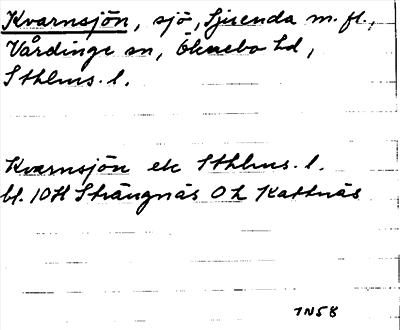 Kvarnsjön, sjö, Sjuenda m. fl.,
Vårdinge sn, Öknebo hd,
Sthlms. l.
Kvarnsjön ek Sthlms. l.
bl. 10H Strängnäs 0h Kattnäs
TN58